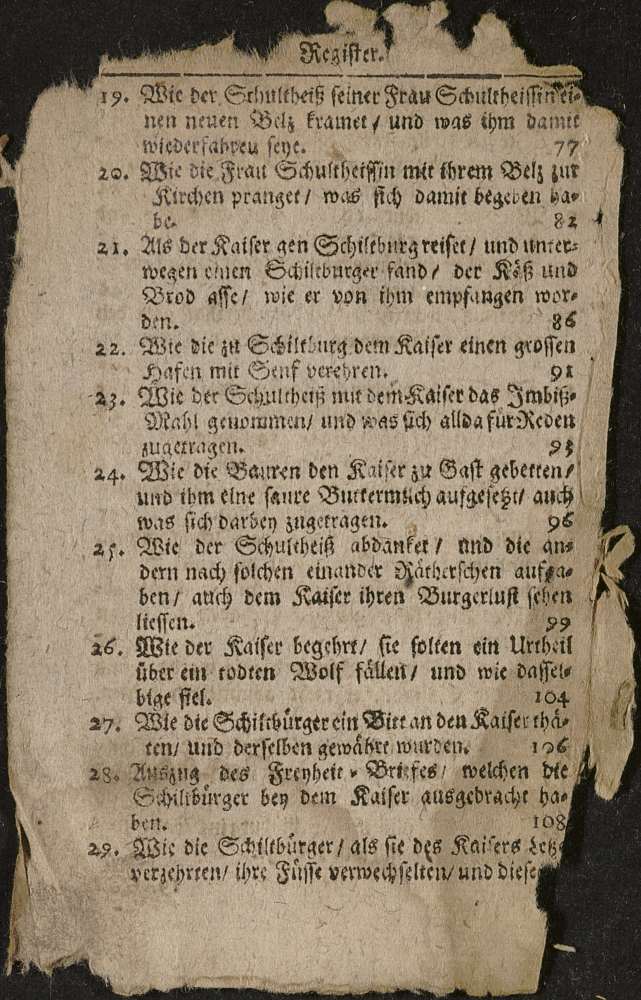 Register.
19. Wie der Schultheiß seiner Frau Schultheissin ei-
nen neuen Belz kramet / und was ihm damit
wiederfahren seye. 77
20. Wie die Frau Schultheissin mit ihrem Belz zur
Kirchen pranget / was sich damit begeben ha-
be. 82
21. Als der Kaiser gen Schiltburg reiset / und unter-
wegen einen Schiltburger fand / der Käß und
Brod asse / wie er von ihm empfangen wor-
den. 86
22. Wie die zu Schiltburg dem Kaiser einen grossen
Hafen mit Senf verehren. 91
23. Wie der Schultheiß mit dem Kaiser das Imbiß-
Mahl genommen / und was sich allda für Reden
zugetragen. 93
24. Wie die Bauren den Kaiser zu Gast gebetten /
und ihm eine saure Buttermilch aufgesetzt / auch
was sich darbey zugetragen. 96
25. Wie der Schultheiß abdanket / und die an-
dern nach solchen einander Rätherschen aufga-
ben / auch dem Kaiser ihren Burgerlust sehen
liessen. 99
26. Wie der Kaiser begehrt / sie solten ein Urtheil
über ein todten Wolf fällen / und wie dassel-
bige fiel. 104
27. Wie die Schiltbürger ein Bitt an den Kaiser thä-
ten / und derselben gewährt wurden. 106
28. Auszug des Freyheit-Briefes / welchen die
Schiltbürger bey dem Kaiser ausgebracht ha-
ben. 108
29. Wie die Schiltbürger / als sie des Kaisers
verzehrten / ihre Füsse verwechselten / und diese